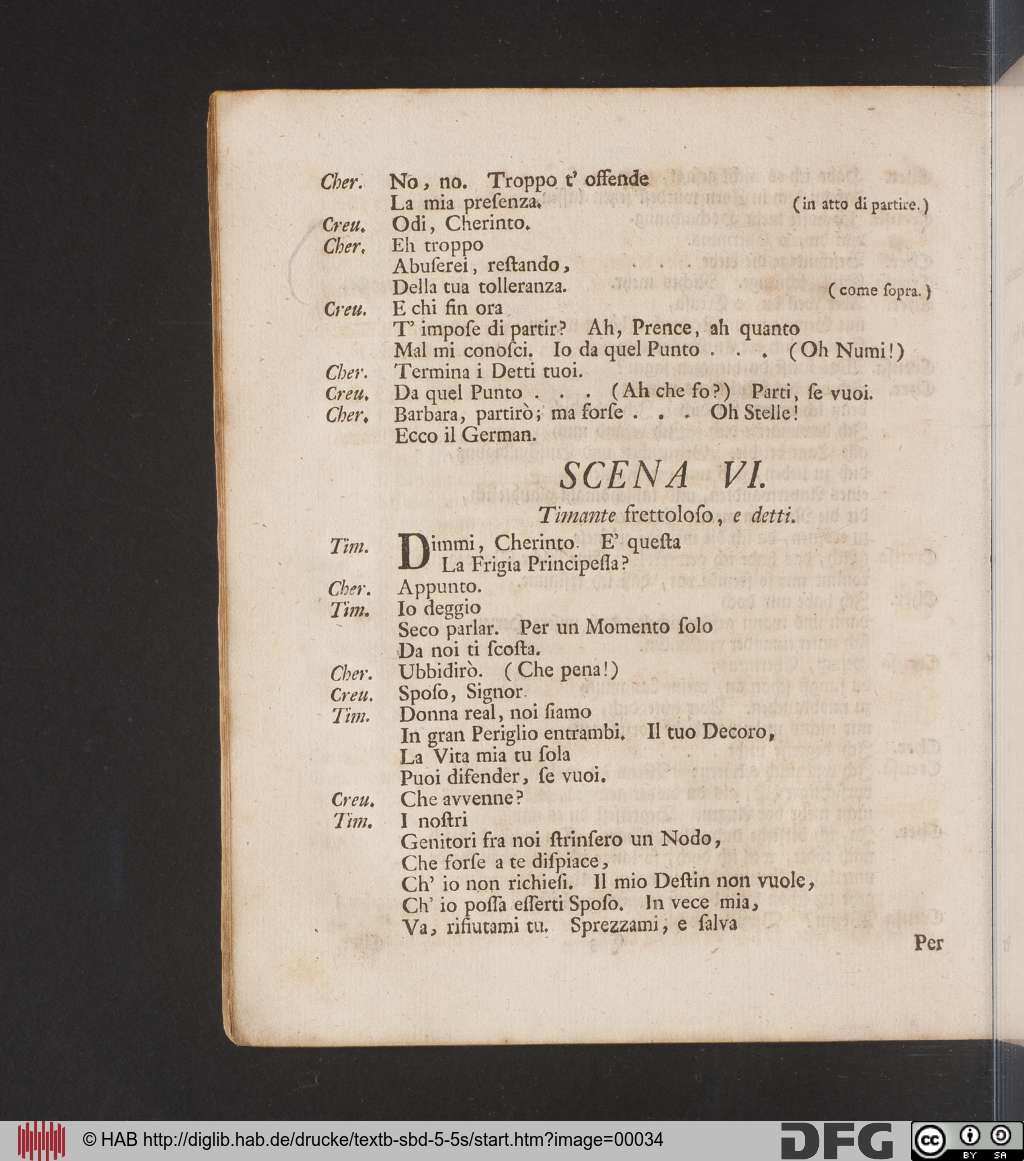 Cher. No, no. Troppo t' offende
La mia preſenza. (in atto di partire.)
Creu. Odi, Cherinto.
Cher. Eh troppo
Abuſerei, reſtando,
Della tua tolleranza. (come ſopra.)
Creu. E chi fin ora
T' impoſe di partir? Ah, Prence, ah quanto
Mal mi conoſci. Io da quel Punto . . . (Oh Numi!)
Cher. Termina i Detti tuoi.
Creu. Da quel Punto . . . (Ah che fo?) Parti, ſe vuoi.
Cher. Barbara, partirò; ma forſe . . . Oh Stelle!
Ecco il German.
SCENA VI.
Timante frettoloſo, e detti.
Tim. Dimmi, Cherinto. E' queſta
La Frigia Principeſſa?
Cher. Appunto.
Tim. Io deggio
Seco parlar. Per un Momento ſolo
Da noi ti ſcoſta.
Cher. Ubbidirò. (Che pena!)
Creu. Spoſo, Signor.
Tim. Donna real, noi ſiamo
In gran Periglio entrambi. Il tuo Decoro,
La Vita mia tu ſola
Puoi difender, ſe vuoi.
Creu. Che avvenne?
Tim. I noſtri
Genitori fra noi ſtrinſero un Nodo,
Che forſe a te diſpiace,
Ch' io non richieſi. Il mio Deſtin non vuole,
Ch' io poſſa eſſerti Spoſo. In vece mia,
Va, rifiutami tu. Sprezzami, e ſalva
Per
© HAB http://diglib.hab.de/drucke/textb-sbd-5-5s/start.htm?image=00034
DFG
cc BY SA